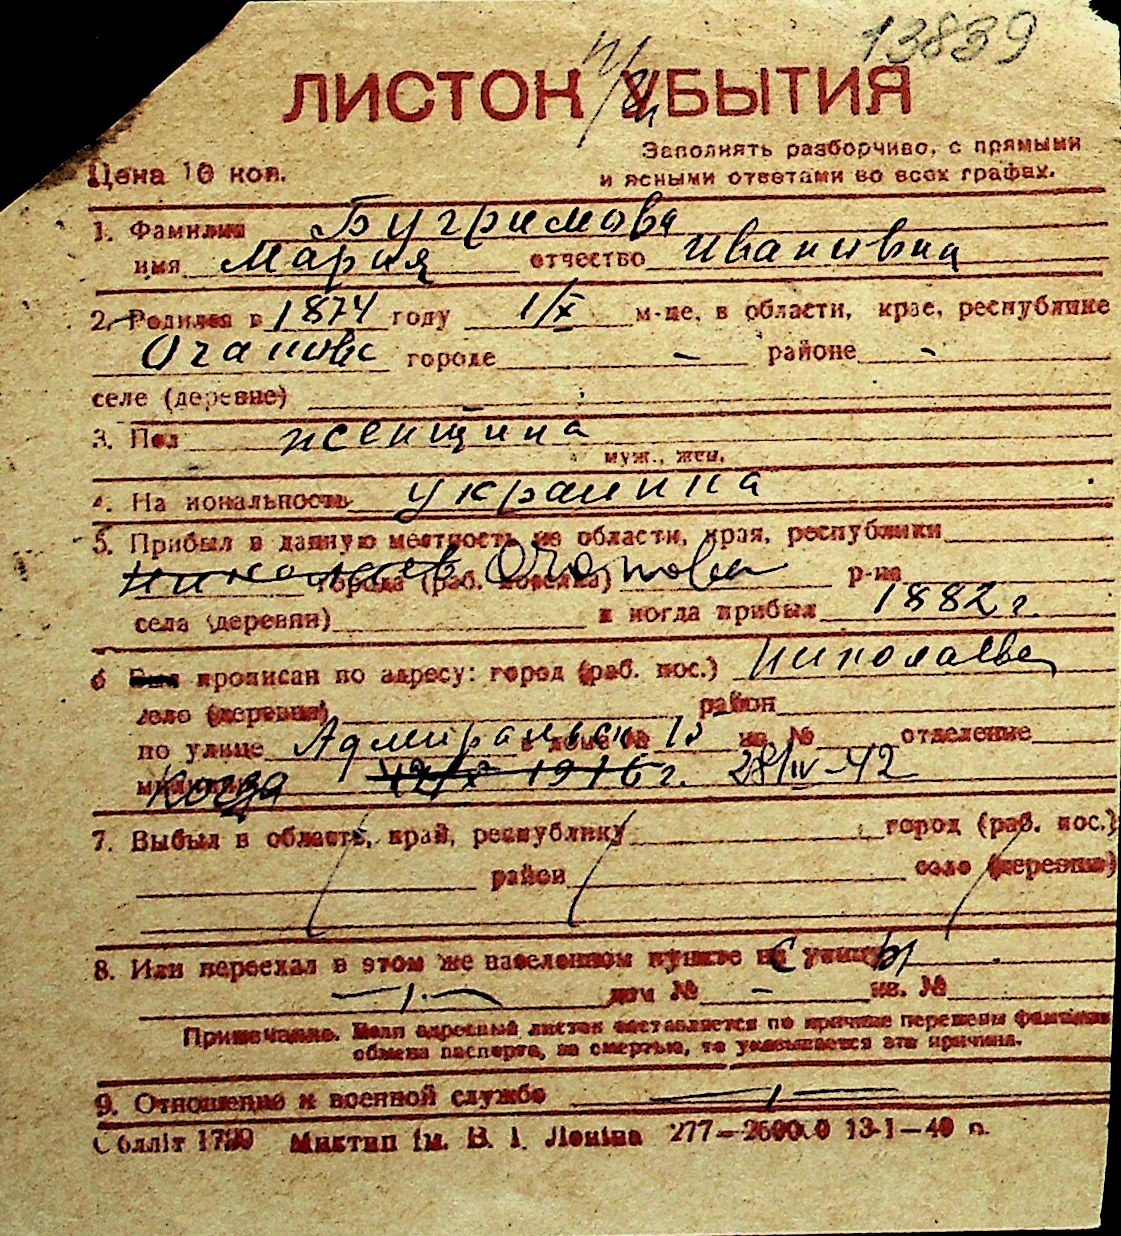 13839
ЛИСТОК УБЫТИЯ
Заполнять разборчиво, с прямыми
Цена 10 коп.
и ясными ответами во всех графах.
1. Фамилия Бугримова
имя Мария отчество Ивановна
2. Родился в 1874 году 1/X м-це, в области, крае, республике
Очаков городе - районе -
селе (деревне) -
3. Пол женщина
муж., жен.
4. На иональность украинка
5. Прибыл в данную местность из области, края, республики
Николаев города (раб. поселка) Очакова р-на
села (деревни) и когда прибыл 1882 г
6 Был прописан по адресу: город (раб. пос.) Николаеве
село (деревня) район
по улице Адмиральск в доме № 13 кв. № отделение
Когда 12/X 1916 г. 28/IV-42
7. Выбыл в область, край, республику город (раб. пос.)
район село (деревню)
8. Или переехал в этом же населенном пункте с улицы
дом № - кв. №
Примечание. Если адресный листок составляется по причине перемены фамилии
обмена паспорта, за смертью, то указывается эта причина.
9. Отношение к военной службе
Облліт 1790 Миктип ім. В. І. Леніна 277—250000 13-1—40 р.